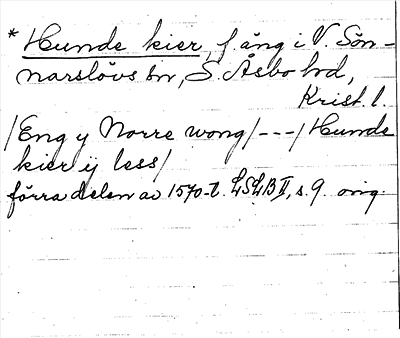 * Hunde kier, f. äng i V. Sön-
narslövs sn, S. Åsbo hd,
Krist. l.
/Eng y Norre wong/---/Hunde
kier ij less/
förra delen av 1570-t. LSLB II, s. 9. orig.